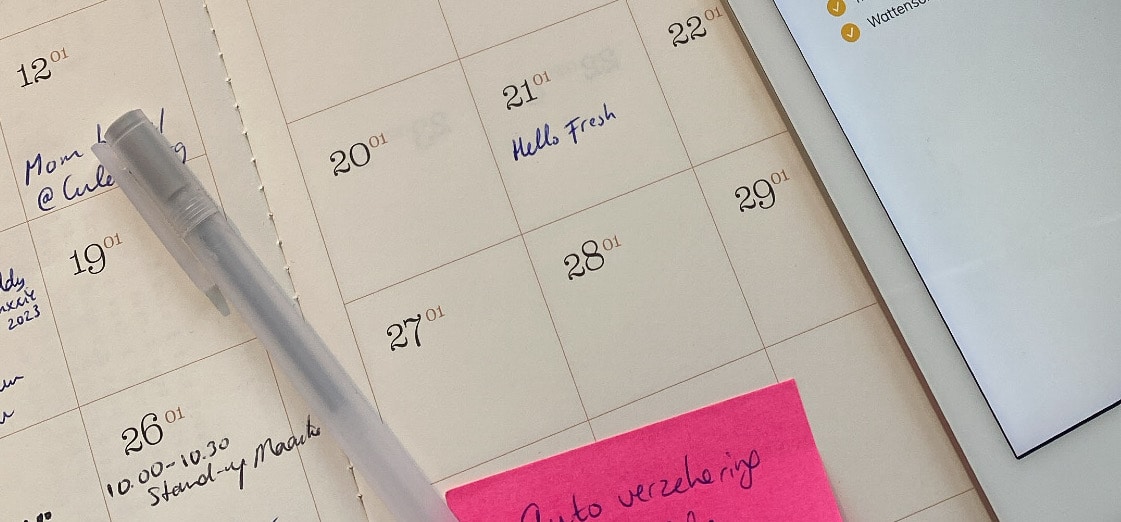 12 01
Mom
@ Cule
19 01
2023
26 01
10.00-10.30
Stand-up
20 01
21 01
Hello Fresh
22 01
27 01
28 01
29 01
Auto verzekering
Wattenso